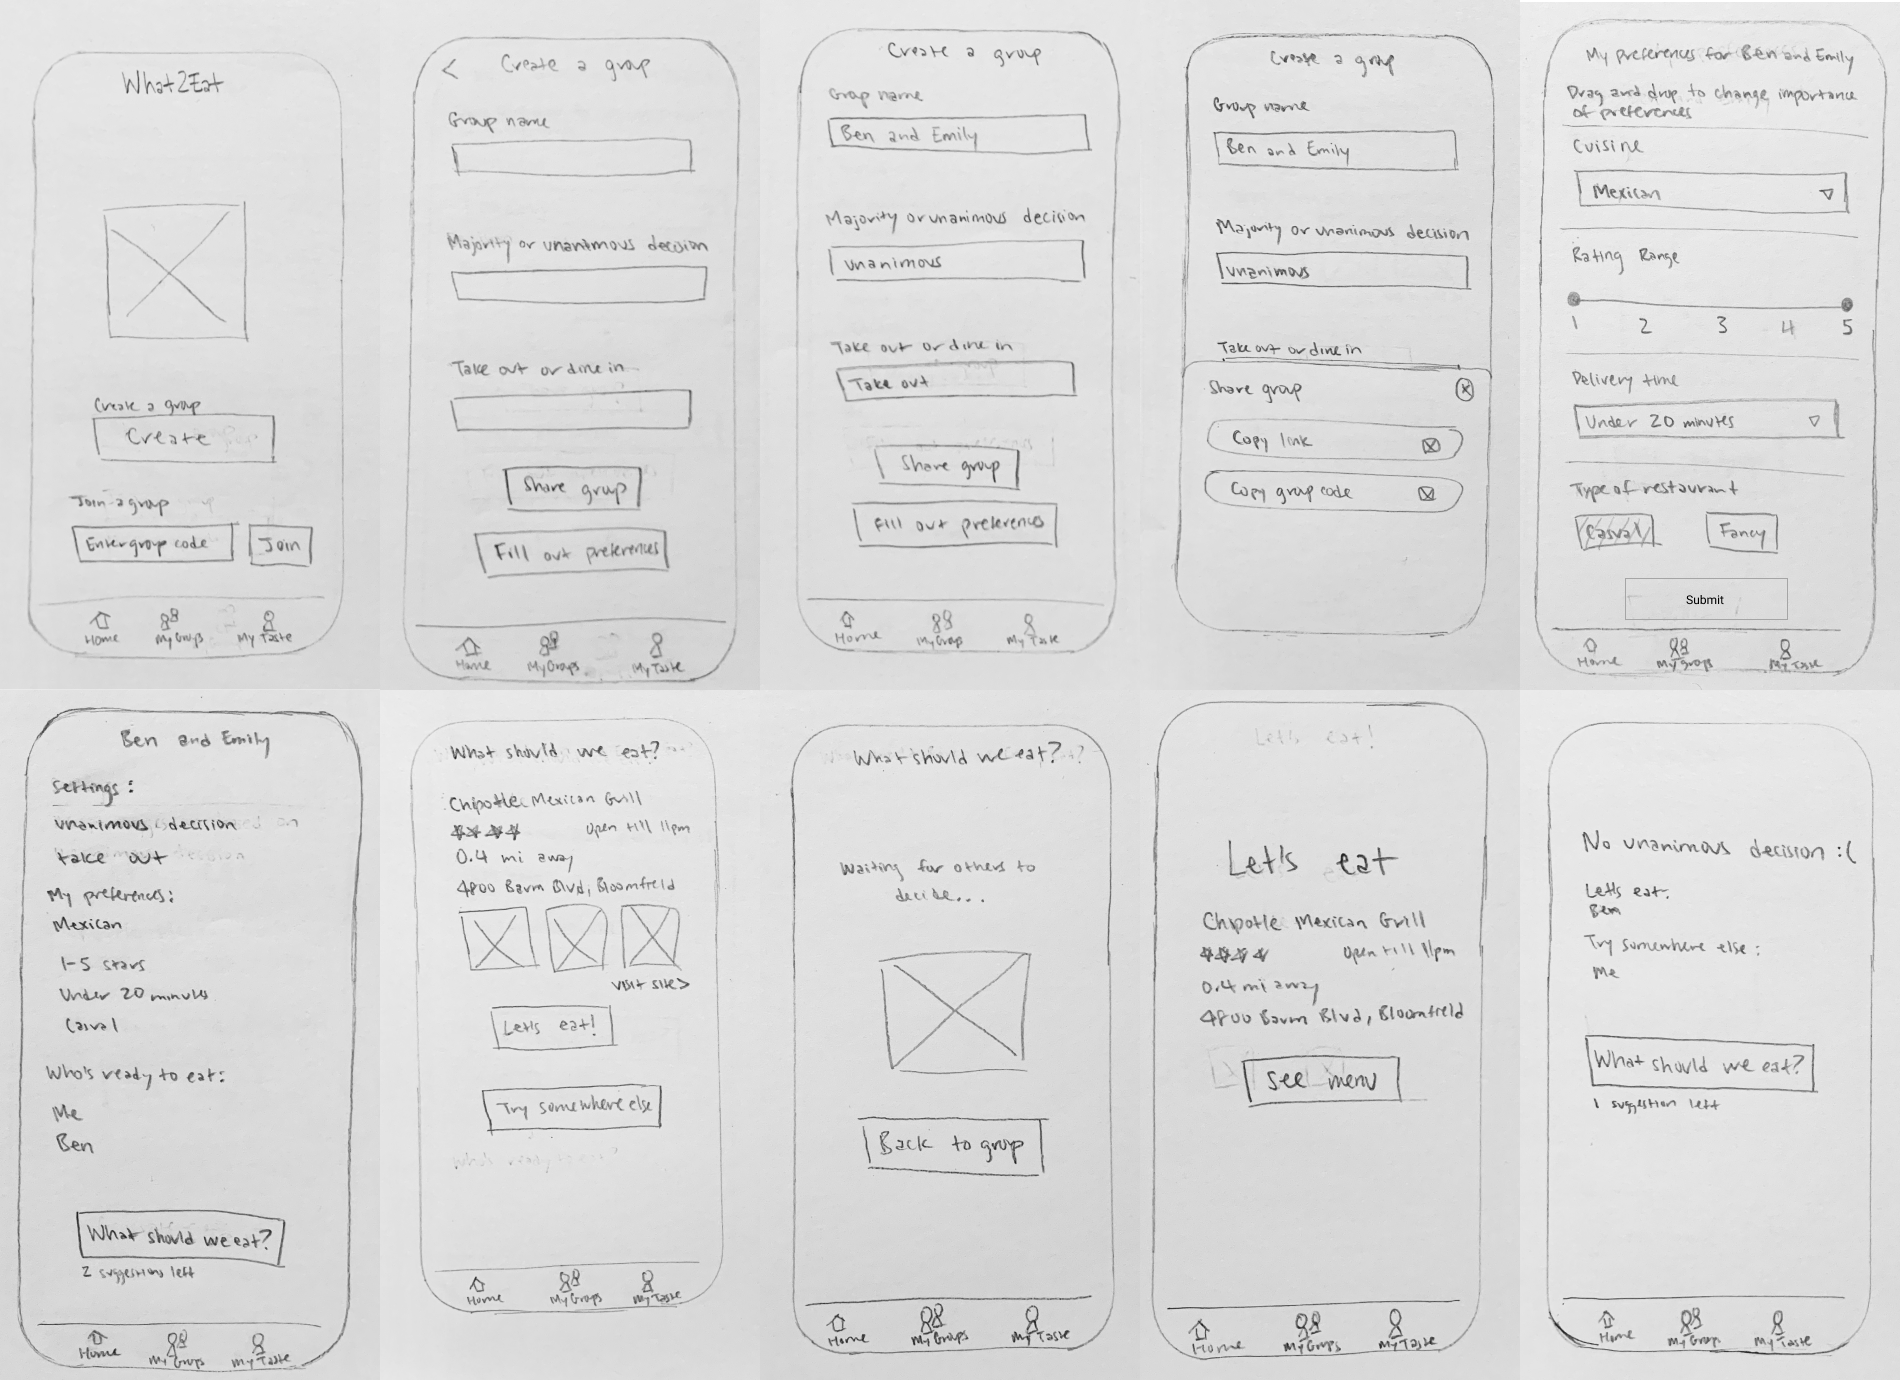 What2Eat
Create a group
Create
Join a group
Enter group code
Join
Home
My Groups
My Taste
<
Create a group
Group name
Majority or unanimous decision
Take out or dine in
Share group
Fill out preferences
Home
My Groups
My Taste
Create a group
Group name
Ben and Emily
Majority or unanimous decision
unanimous
Take out or dine in
Take out
Share group
Fill out preferences
Home
My Groups
My Taste
Create a group
Group name
Ben and Emily
Majority or unanimous decision
unanimous
Take out or dine in
Share group
Copy link
Copy group code
My preferences for Ben and Emily
Drag and drop to change importance
of preferences
Cuisine
Mexican
Rating Range
1 2 3 4 5
Delivery time
Under 20 minutes
Type of restaurant
Casual
Fancy
Submit
Home
My groups
My Taste
Ben and Emily
Settings:
unanimous decision
take out
My preferences:
Mexican
1-5 stars
Under 20 minutes
Casual
Who's ready to eat:
Me
Ben
What should we eat?
2 suggestions left
Home
My Groups
My Taste
What should we eat?
Chipotle Mexican Grill
Open till 11pm
0.4 mi away
4800 Baum Blvd, Bloomfield
visit site>
Let's eat!
Try somewhere else
Home
My Groups
My Taste
What should we eat?
Waiting for others to
decide...
Back to group
Home
My Groups
My Taste
Let's eat!
Let's eat
Chipotle Mexican Grill
Open till 11pm
0.4 mi away
4800 Baum Blvd, Bloomfield
See menu
Home
My Groups
My Taste
No unanimous decision :(
Let's eat:
Ben
Try somewhere else:
Me
What should we eat?
1 suggestion left
Home
My Groups
My Taste